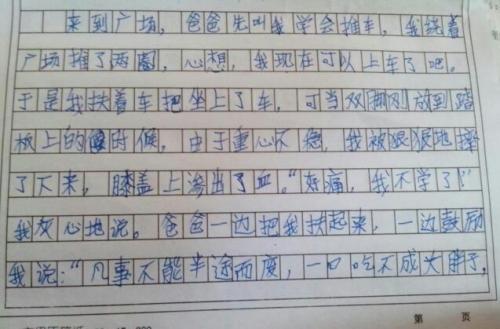 来到广场，爸爸先叫我学会推车，我绕着
广场推了两圈，心想，我现在可以上车了吧。
于是我扶着车把坐上了车，可当双脚刚放到踏
板上的时候，由于重心不稳，我被狠狠地摔
了下来，膝盖上渗出了血。“好痛，我不学了！”
我灰心地说。爸爸一边把我扶起来，一边鼓励
我说：“凡事不能半途而废，一口吃不成大胖子，
第 页